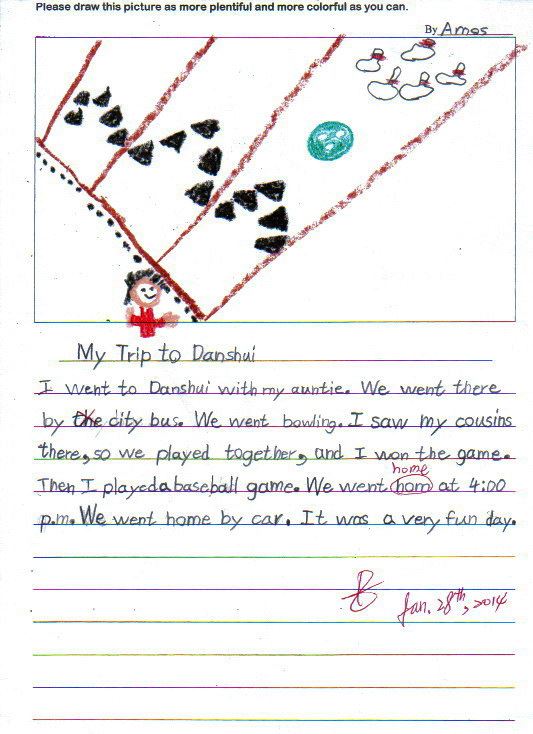 Please draw this picture as more plentiful and more colorful as you can.
By Amos
My Trip to Danshui
I went to Danshui with my auntie. We went there
by the city bus. We went bowling. I saw my cousins
there, so we played together, and I won the game.
home
Then I played a baseball game. We went hom at 4:00
p.m. We went home by car. It was a very fun day.
Jan. 28th, 2014